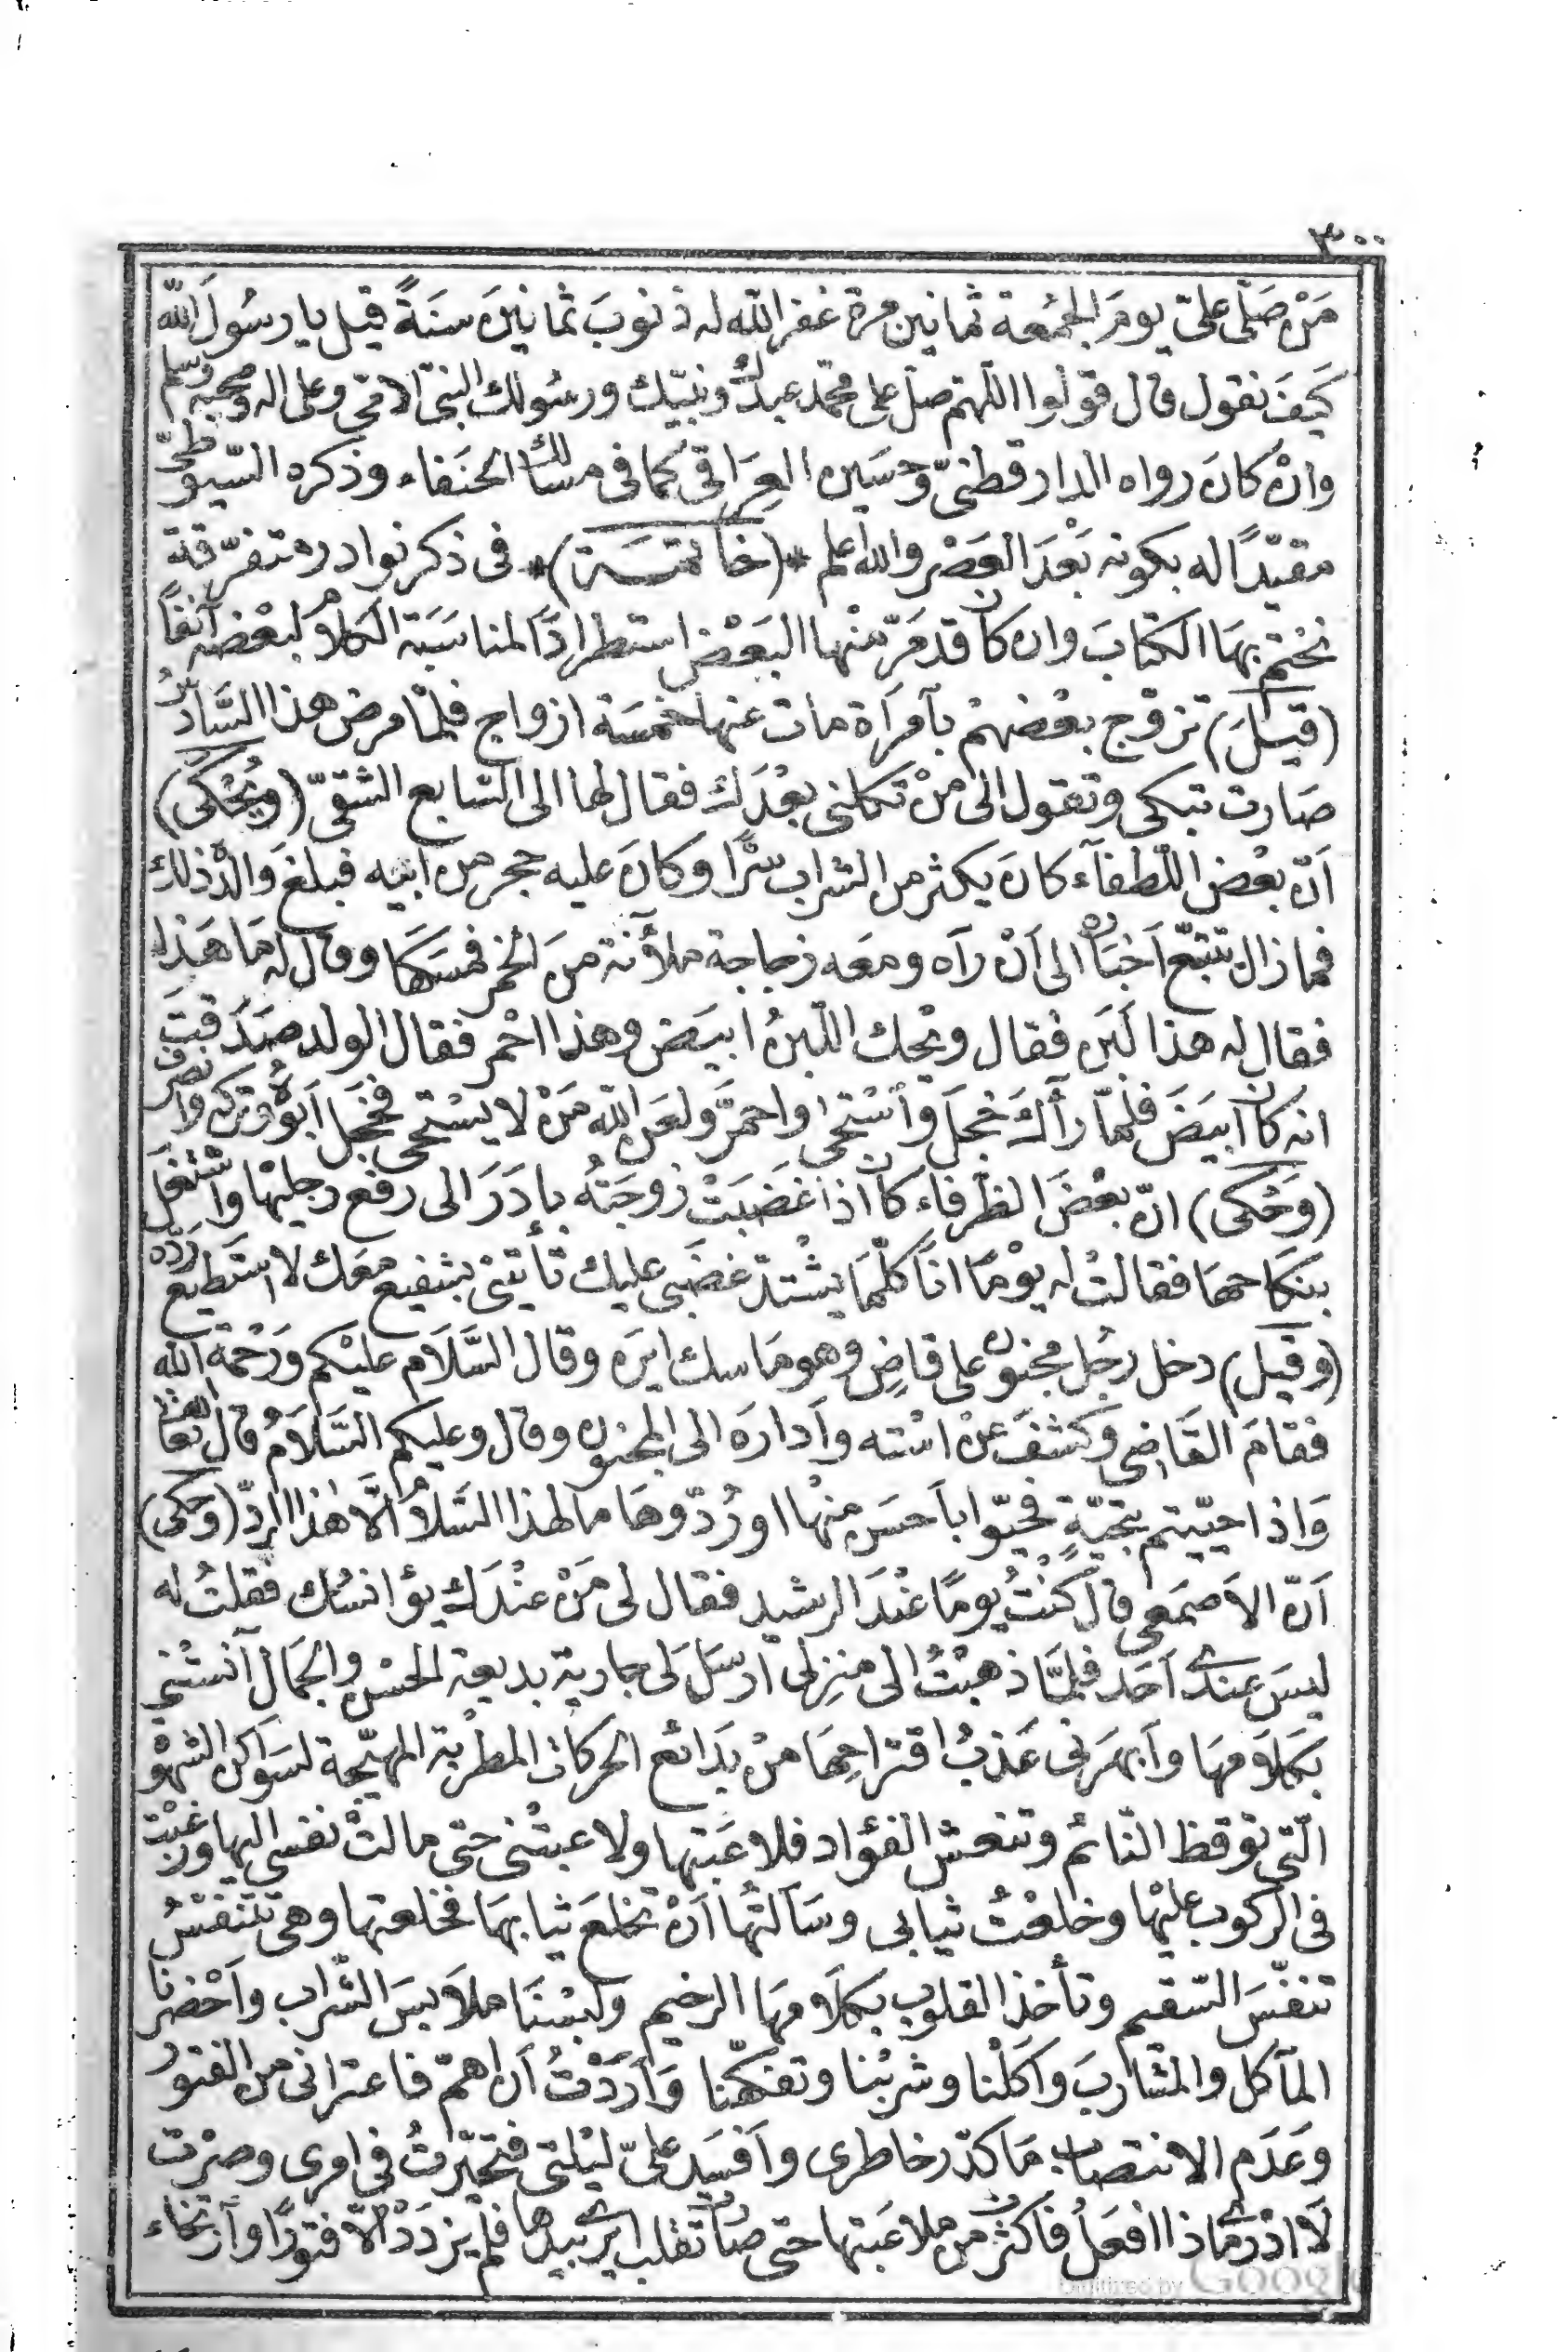 ٣٠٠
مَنْ صَلّى علىّ يومَ الجُمُعة ثمانين مرة غفر الله له ذنوبَ ثمانينَ سنَةً قيل يا رسُولَ الله
كَيفَ نقول قال قولوا اللّهمّ صل على محمّد عبدكَ ونبيّك ورسُولك النبىّ الامّى وعلى اله وصحبه وسلم
وانْ كانَ رواه الدارقطنىّ وحَسّنه العِرَاقى كما فى مسالك الحنَفاء وذكره السّيوطىّ
مقيّدًا له بكونه بَعْدَ العَصْر والله اعلم *(خاتمَة)* فى ذكر نوادر متفرّقة
نختم بهَا الكتابَ وان كان قد مَرّ منْها البَعْض استطرادًا لمناسَبَة الكلام لبَعْضه آنفًا
(قيلَ) تزوّج بعْضهمْ بآمرَاة مات عنها خمسَة ازواج فلمّا مرض هذا السَّادسُ
صَارت تبكى وتقول الى مَنْ تكلنى بعْدَك فقال لها الى السّابع الشقىّ (ويُحْكى)
اَنّ بعْض اللّطفآء كانَ يكثر من الشراب سرًّا وكانَ عليه حجر من ابيه فبلغ وَالدُه ذلك
فما زال يتتبّع اَخبَاره الى اَنْ رآه ومعَه زجاجة ملآنة منَ الخمر فمسَكهَا وقال له مَا هَذا
فقال له هذا لَبَن فقال ويْحك اللّبنُ ابيَض وهذا احْمر فقال الولد صَدَقتَ
انه كان اَبيَضَ فلمّا رآكَ خجلَ وَآسْتحى واحمرَّ ولعَن الله مَنْ لا يسْتحى فخجلَ اَبوُهُ وتركه وانصرف
(وَحُكى) انّ بعْضَ الظرفاء كان اذا غَضبَتْ زوجَتهُ بادَرَ الى رفع رجليْها وَاشْتغلَ
بنكاحهَا فقالتْ له يوْمًا انا كلّمَا يشْتدّ غضَبى عليك تأتينىْ بشفيع معَك لا استَطيع رَدّه
(وقيل) دخل رجُل مجنون على قاضٍ وهو مَاسك ايرَه وقال السَّلَام عليْكم وَرَحْمَة الله
فقامَ القَاضى وكشفَ عنْ اسْته وآدارَه الى المجنون وقال وعليكم السَّلَامُ قال الله تعَالى
وَاذا حيّيتم بتحيّةٍ فحيّوا باَحسَن منْها اورُدّوهَا ما لهذا السَّلام الاَّ هٰذا الردّ (وَحكى)
اَنّ الاَصمَعى قال كنْتُ يومًا عنْدَ الرشيد فقال لى مَنْ عنْدَك يؤانسُك فقلتُ له
ليسَ عندى اَحَد فلمَّا ذهبْتُ الى منزِلى اَرسَلَ لى جارية بديعة الحسْن والجمال آنسَتْنى
بكلاَمهَا واَبهَرَنى عَذبُ اقتراحِهَا منْ بدَائع الحركات المطربة المهيّجة لسَوَاكن الشهْوة
الّتى توقظ النّائم وتنعش الفؤاد فلاعَبَتها ولاعبَتْنى حتى مالتْ نفسى اليها ورغبْت
فى الركوب عليْها وخلعْتُ ثيابى وسَألتُها اَنْ تخلعَ ثيابهَا فخلعتها وهى تتنفسُ
تنفّسَ السّقيم وتأخذ القلوب بكلاَمهَا الرخيم ولَبسْنَا ملاَبسَ الشّراب واَحْضرنا
المآكل والمشَاربَ واَكلْنا وشربْنا وتفكّهنا وَاَرَدْتُ اَن اهمّ فاعترانى من الفتور
وعَدَم الانتصاب مَا كدّر خاطرى واَفسَد علىّ ليْلتى فتحيّرتُ فى امرى وصرْت
لاَ ادْرى مَاذا افعَلُ فاكثرت من ملاعَبَتها حتى صارَت تقلب ايرى بيدهَا فلمْ يزدَدْ الاّ فتورًا وارتخاء
Digitized by Google